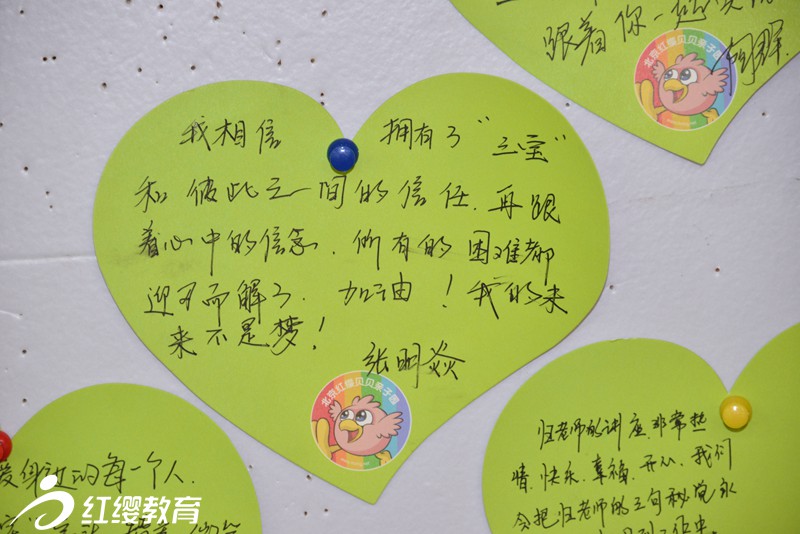 跟着你一起
北京红缨贝贝亲子园
我相信 拥有了“三宝”
和彼此之间的信任.再跟
着心中的信念.所有的困难都
迎刃而解了.加油！我的未
来不是梦！
张明焱
北京红缨贝贝亲子园
爱身边的每一个人.
归老师的讲座.非常热
情.快乐.幸福.开心.我们
会把归老师的三句秘诀永
红缨教育